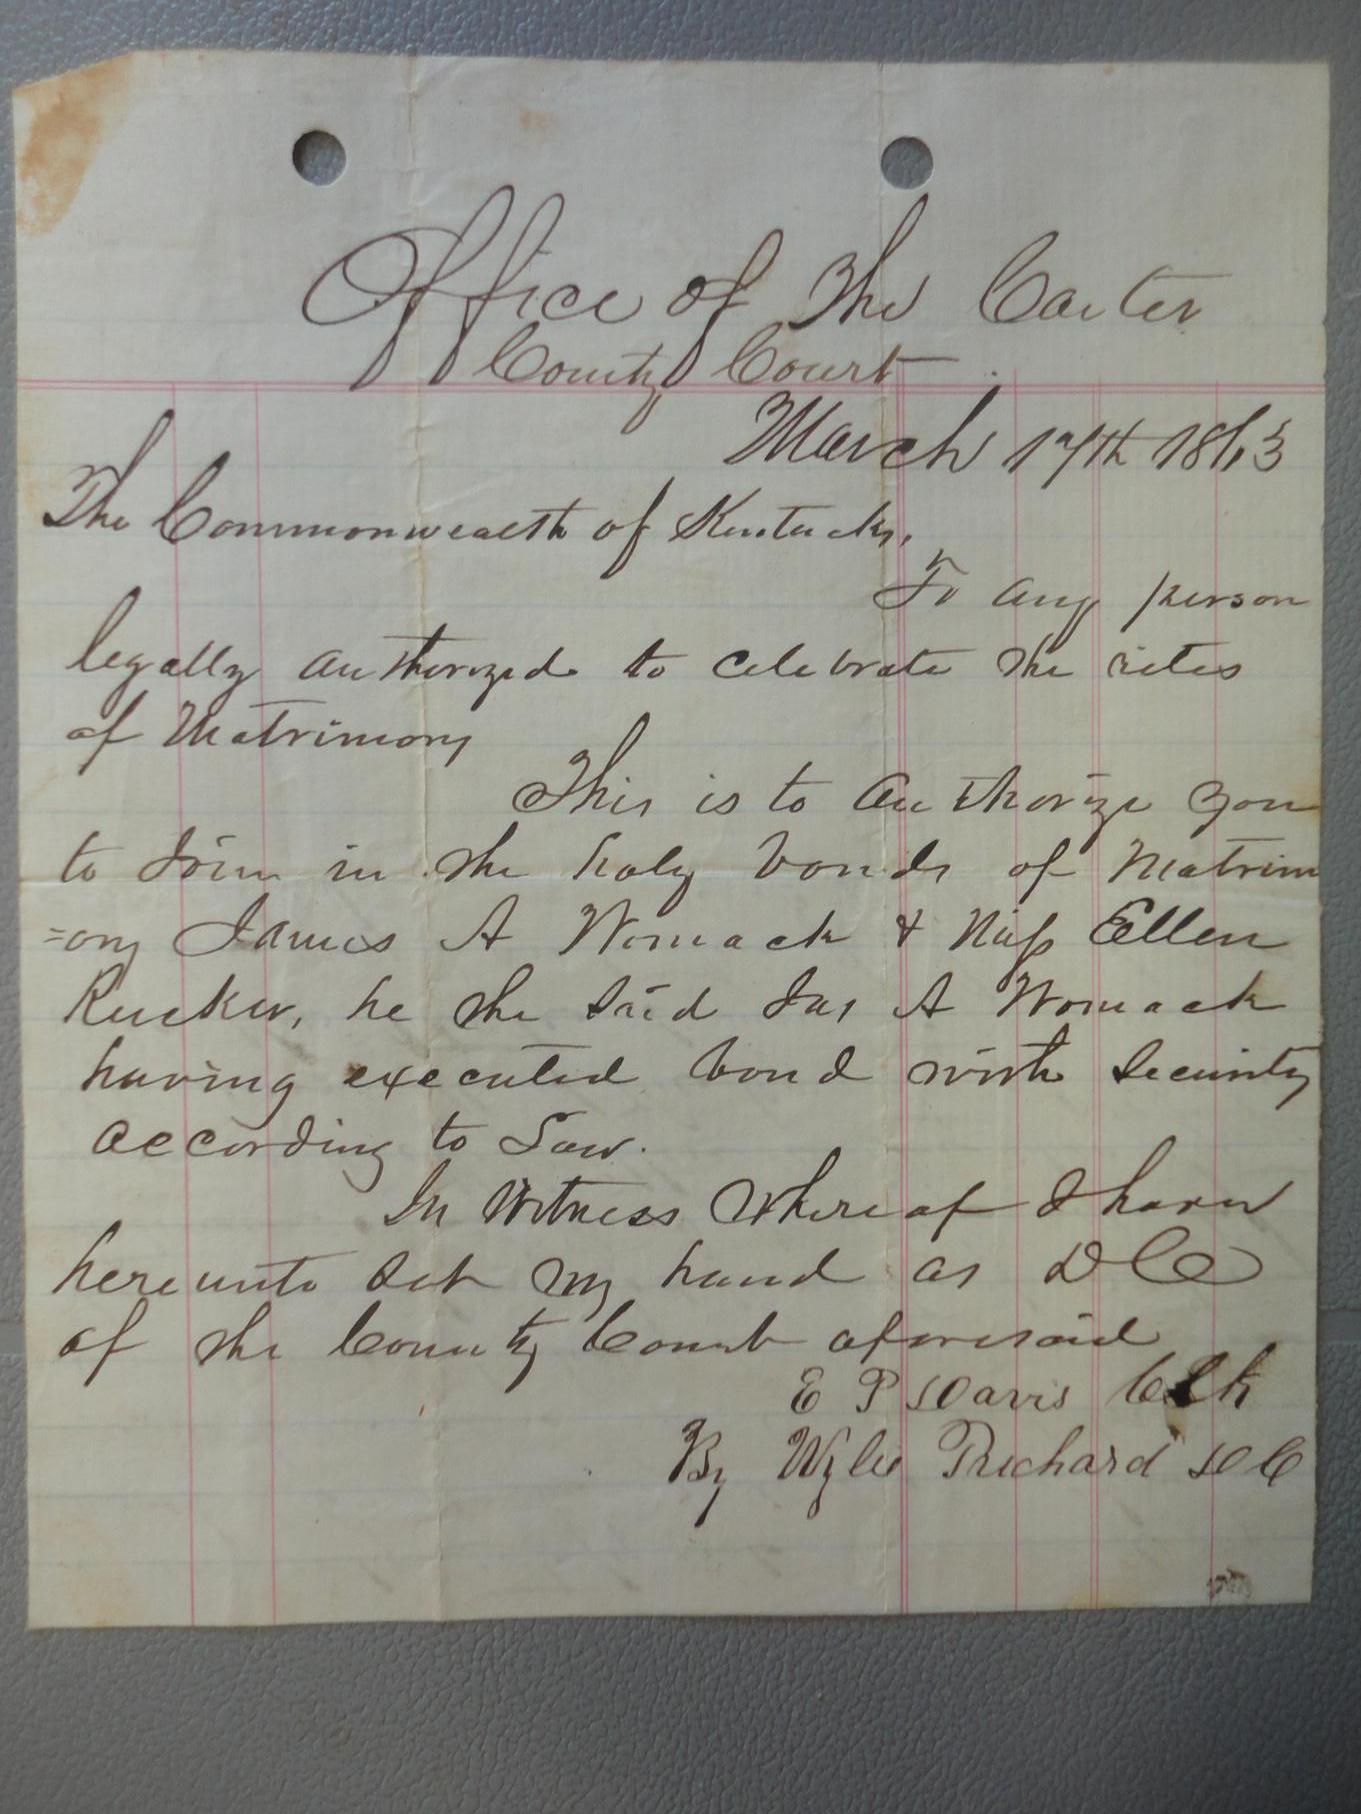 Office of The Carter
County Court
March 17th 1863
The Commonwealth of Kentucky,
To any person
legally authorized to celebrate the rites
of Matrimony
This is to authorize you
to Join in the holy bonds of Matrim
=ony James A Womack & Miss Ellen
Rucker, he the Said Jas A Womack
having executed bond with Security
according to Law.
In Witness Whereof I have
hereunto Set my hand as D C
of the County Court aforesaid
E P Davis Clk
By Wylie Prichard D C